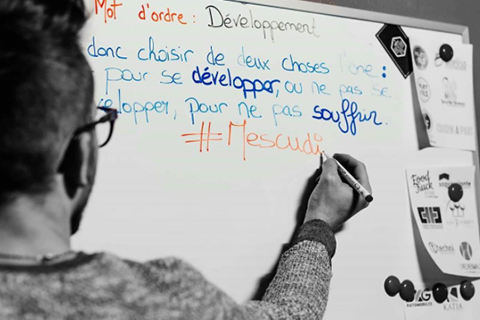 Mot d'ordre : Développement
donc choisir de deux choses l'une :
pour se développer, ou ne pas se
développer, pour ne pas souffrir.
#Mescudi
Food
Truck
KATJA